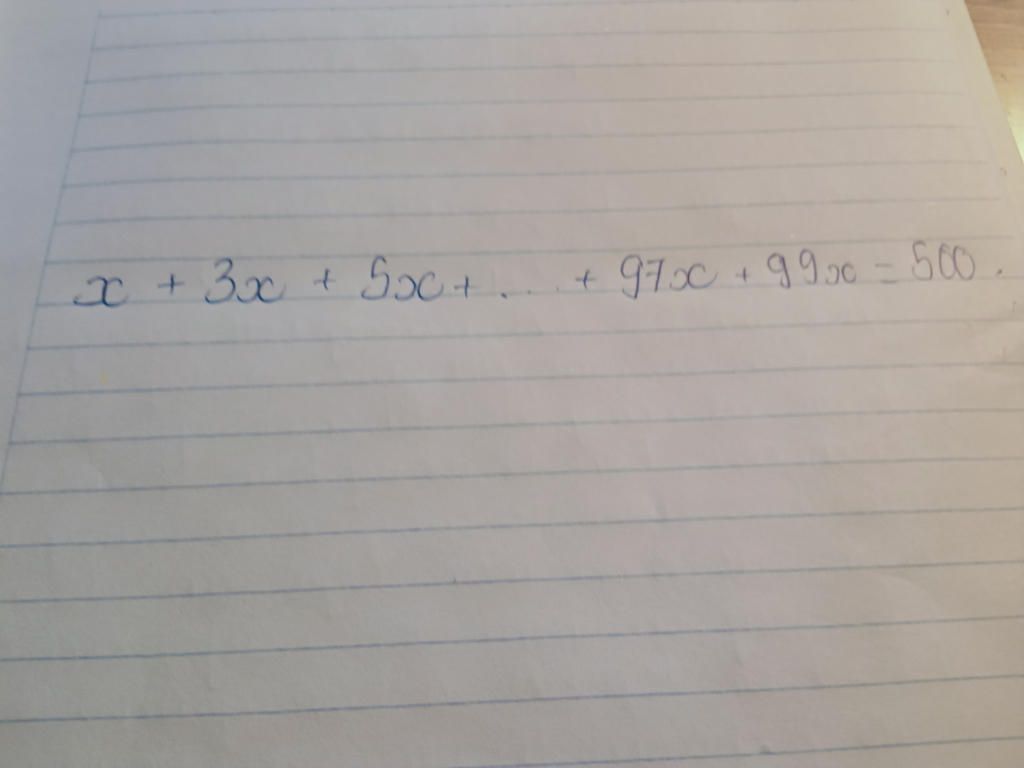 x + 3x + 5x + .... + 97x + 99x = 500.